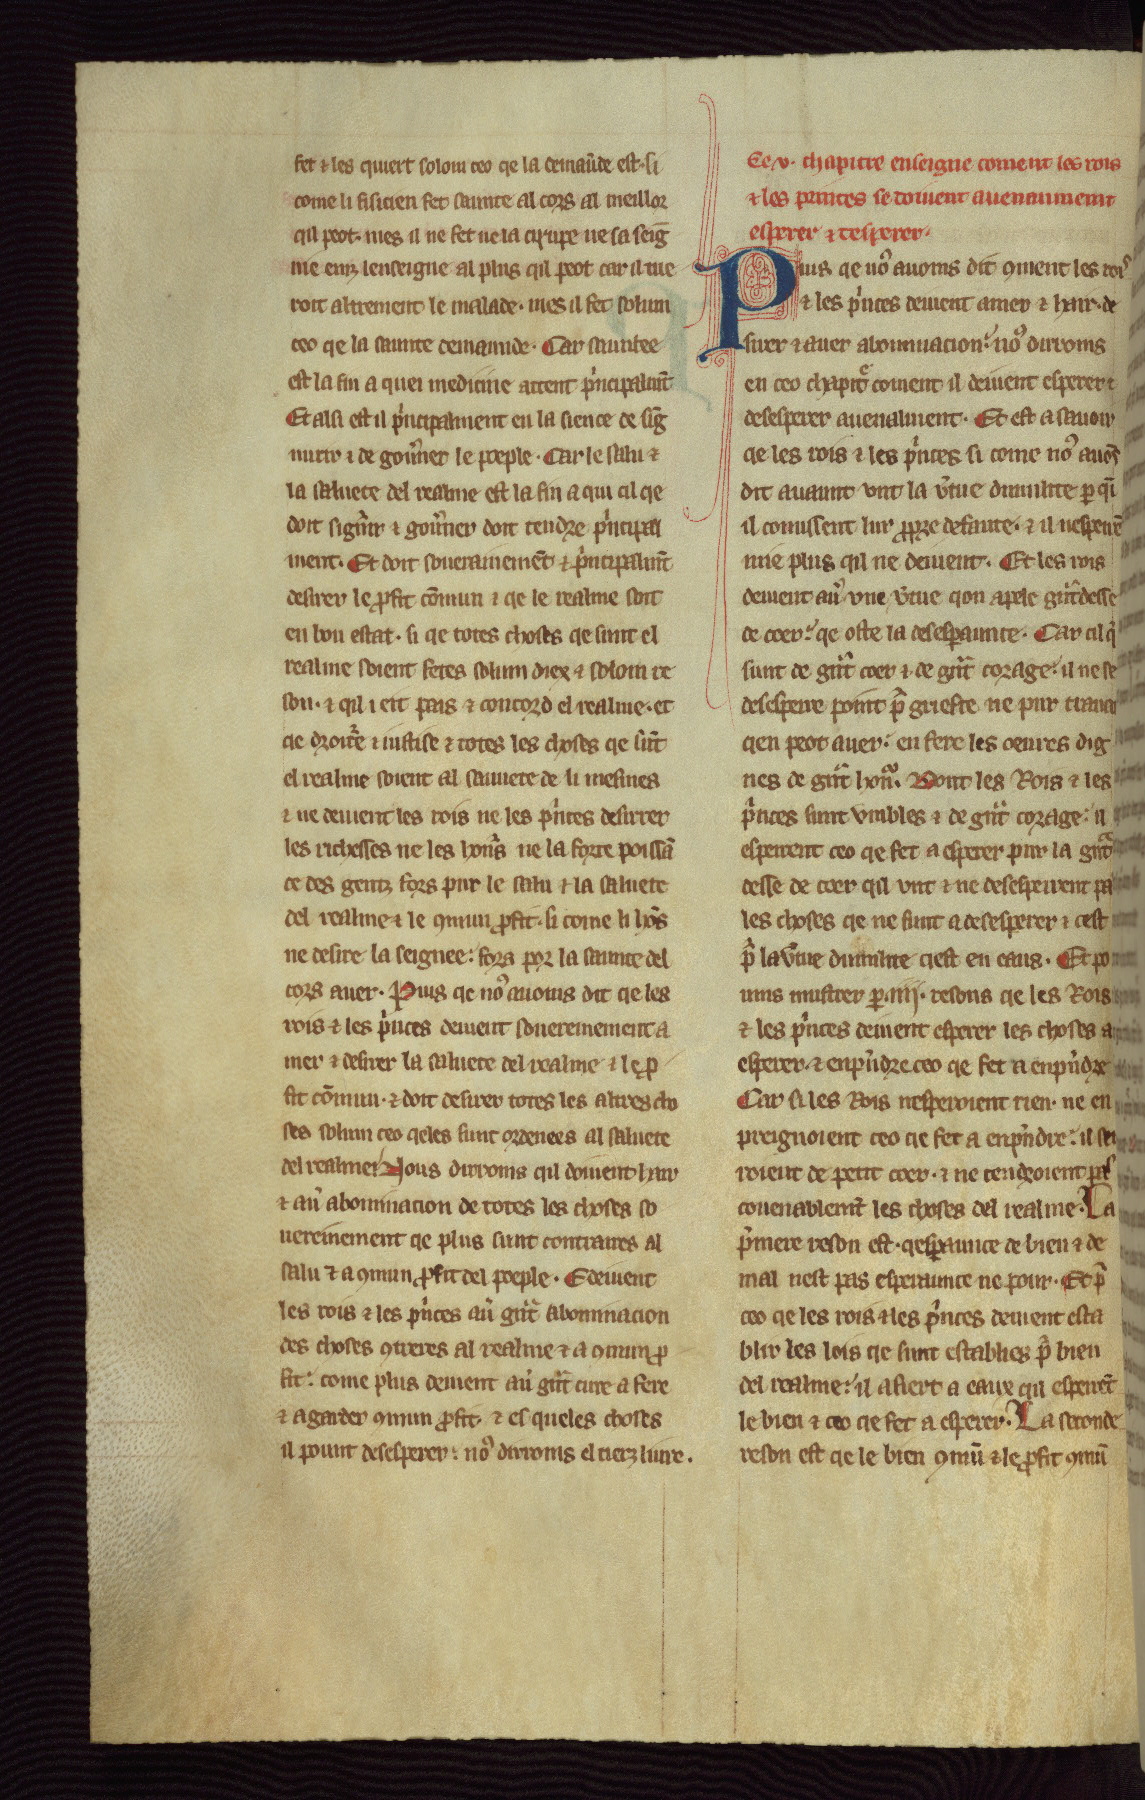 fet ⁊ les quiert solom ceo qe la demaũde est· si
come li fisicien fet saunte al cors al meillor
qil peot· mes il ne fet ne la cirurpe ne sa seig̃
nie enz lenseigne al plus qil peot car il tue
roit altrement le malade· mes il fet solum
ceo qe la saunte demaunde· Car sauntee
est la fin a quei medicine attent p̃ncipalmt̃
Et alsi est il p̃ncipalment en la sience de sig̃
nurir ⁊ de gou̾ner le poeple· Car le salu ⁊
la saluete del realme est la fin a qui cil qe
doit sign̾ir ⁊ gou̾ner doit tendre p̃ncipal
ment· Et doit souerainemẽt ⁊ p̃ncipalmt̃
desirer le ꝓfit cõmun ⁊ qe le realme soit
en bon estat· si qe totes choses qe sunt el
realme soient fetes solum diex ⁊ solom re
son· ⁊ qil i eit pais ⁊ concord el realme· et
qe droit̾e ⁊ iustise ⁊ totes les choses qe sũt
el realme soient al sauuete de li mesmes
⁊ ne deiuent les rois ne les p̃nces desirrer
les richesses ne les hon̾s ne la forte poissã
ce des gentz fors pur le salu ⁊ la saluete
del realme ⁊ le ꝯmun ꝓfit· si come li hõs
ne desire la seignee: fors por la saunte del
cors auer· Puis qe noꝰ auoms dit qe les
rois ⁊ les p̃nces deiuent souereinement a
mer ⁊ desirer la saluete del realme ⁊ le ꝓ
fit cõmun· ⁊ doit desirer totes les altres cho
ses solum ceo qeles sunt ordenees al saluete
del realme: Nous dirroms qil doiuent hair
⁊ au̾ abominacion de totes les choses so
uereinement qe plus sunt contraires al
salu ⁊ a ꝯmun ꝓfit del poeple· E deiuent
les rois ⁊ les p̃nces au̾ gñt abominacion
des choses ꝯtreres al realme ⁊ a ꝯmun ꝓ
fit: come plus deiuent au̾ gñt cure a fere
⁊ a garder ꝯmun ꝓfit· ⁊ es queles choses
il pount desesperer: noꝰ dirroms el tierz liure·
Ce v· chapitre enseigne coment les rois
⁊ les princes se doiuent auenaument
esperer ⁊ desperer·
Puis qe noꝰ auoms dit ꝯment les rois
⁊ les p̃nces deiuent amer ⁊ hair· de
sirer ⁊ auer abominacion: noꝰ dirroms
en ceo chapitr̃ coment il deiuent esperer ⁊
desesperer auenalment· Et est a sauoir
qe les rois ⁊ les p̃nces si come noꝰ auõs
dit auaunt unt la v̾tue dumilite ꝑ qi
il conussent lur ꝓpre defaute· ⁊ il nesperẽt
mie plus qil ne deiuent· Et les rois
deiuent au̾ vne v̾tue qon apele gñtdesse
de coer: qe oste la desesperaunce· Car cil q̃
sunt de gñt coer ⁊ de gñt corage: il ne se
desespeire point p̃ griefte ne pur
qen peot auer: en fere les oeures dig
nes de gñt hono̾· Dont les Rois ⁊ les
p̃nces sunt vmbles ⁊ de gñt corage: il
espeirent ceo qe fet a esperer pur la gñt
desse de coer qil vnt ⁊ ne desespeirent pas
les choses qe ne sunt a desesperer ⁊ cest
p̃ la v̾tue dumilite qest en eaus· Et po
ums mustrer ꝑ iiij· resons qe les Rois
⁊ les p̃nces deiuent esperer les choses a
esperer· ⁊ enp̃ndre ceo qe fet a enp̃ndre
Car si les Rois nesperoient rien· ne en
preignoient ceo qe fet a enp̃ndre: il ser
roient de petit coer· ⁊ ne tendroient pas
couenablemt̃ les choses del realme· La
p̃mere reson est· qesꝑaunce de bien ⁊ de
mal nest pas esperaunce ne pour· Et p̃
ceo qe les rois ⁊ les p̃nces deiuent esta
blir les lois qe sunt establies p̃ bien
del realme: il afiert a eaux qil esperẽt
le bien ⁊ ceo qe fet a esperer· La seconde
reson est qe le bien ꝯmũ ⁊ le ꝓfit ꝯmũ